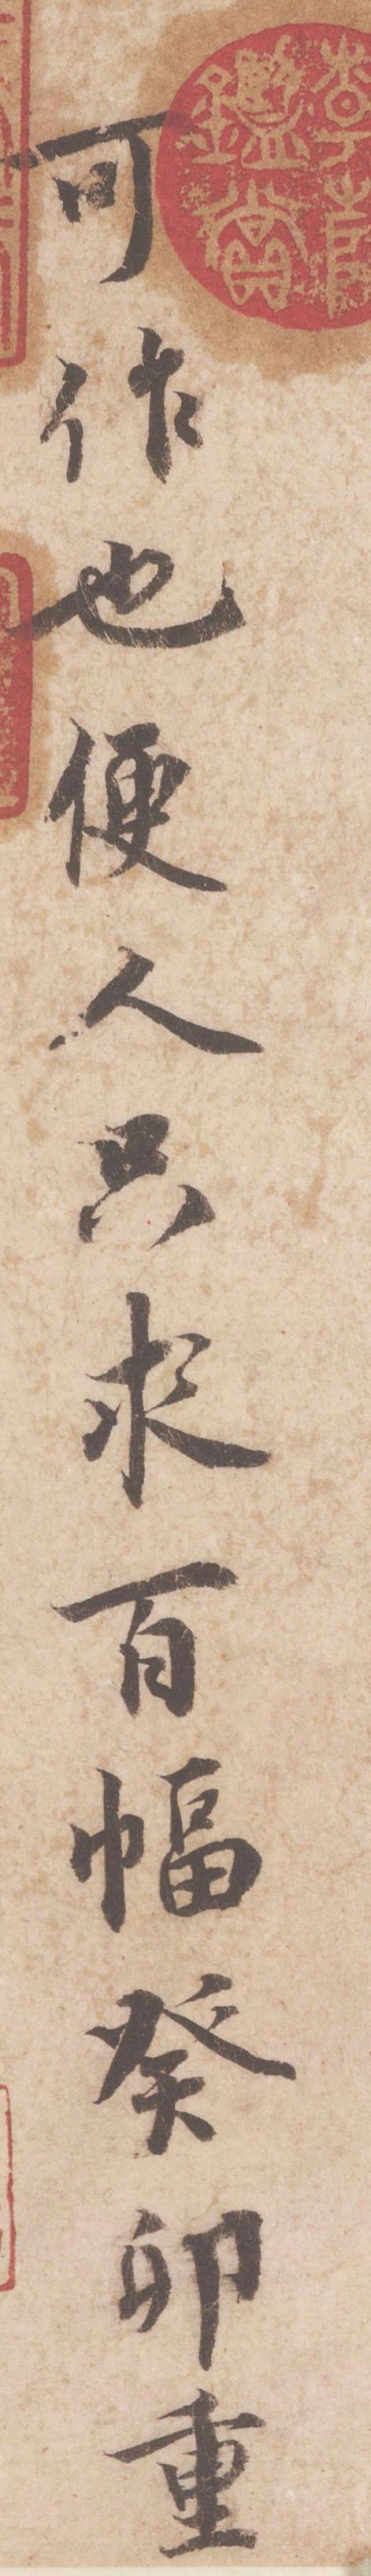 可作也便人只求百幅癸卯重